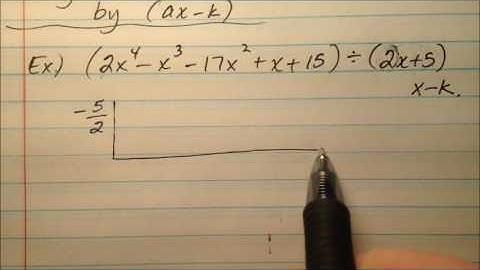 by (ax-k)
Ex.) (2x⁴ - x³ - 17x² + x + 15) ÷ (2x+5)
x-k.
-5/2